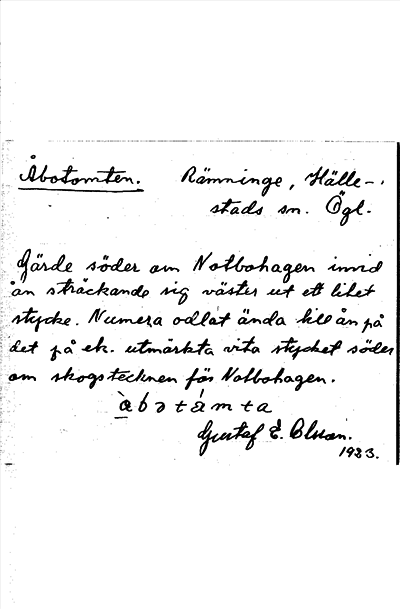 Åbotomten. Rämninge, Hälle-
stads sn. Ögl.
Gärde söder om Notbohagen invid
ån sträckande sig väster ut ett litet
stycke. Numera odlat ända till ån på
det på ek. utmärkta vita stycket söder
om skogstecknen för Notbohagen.
àbotámta
Gustaf E. Olsson.
1923.